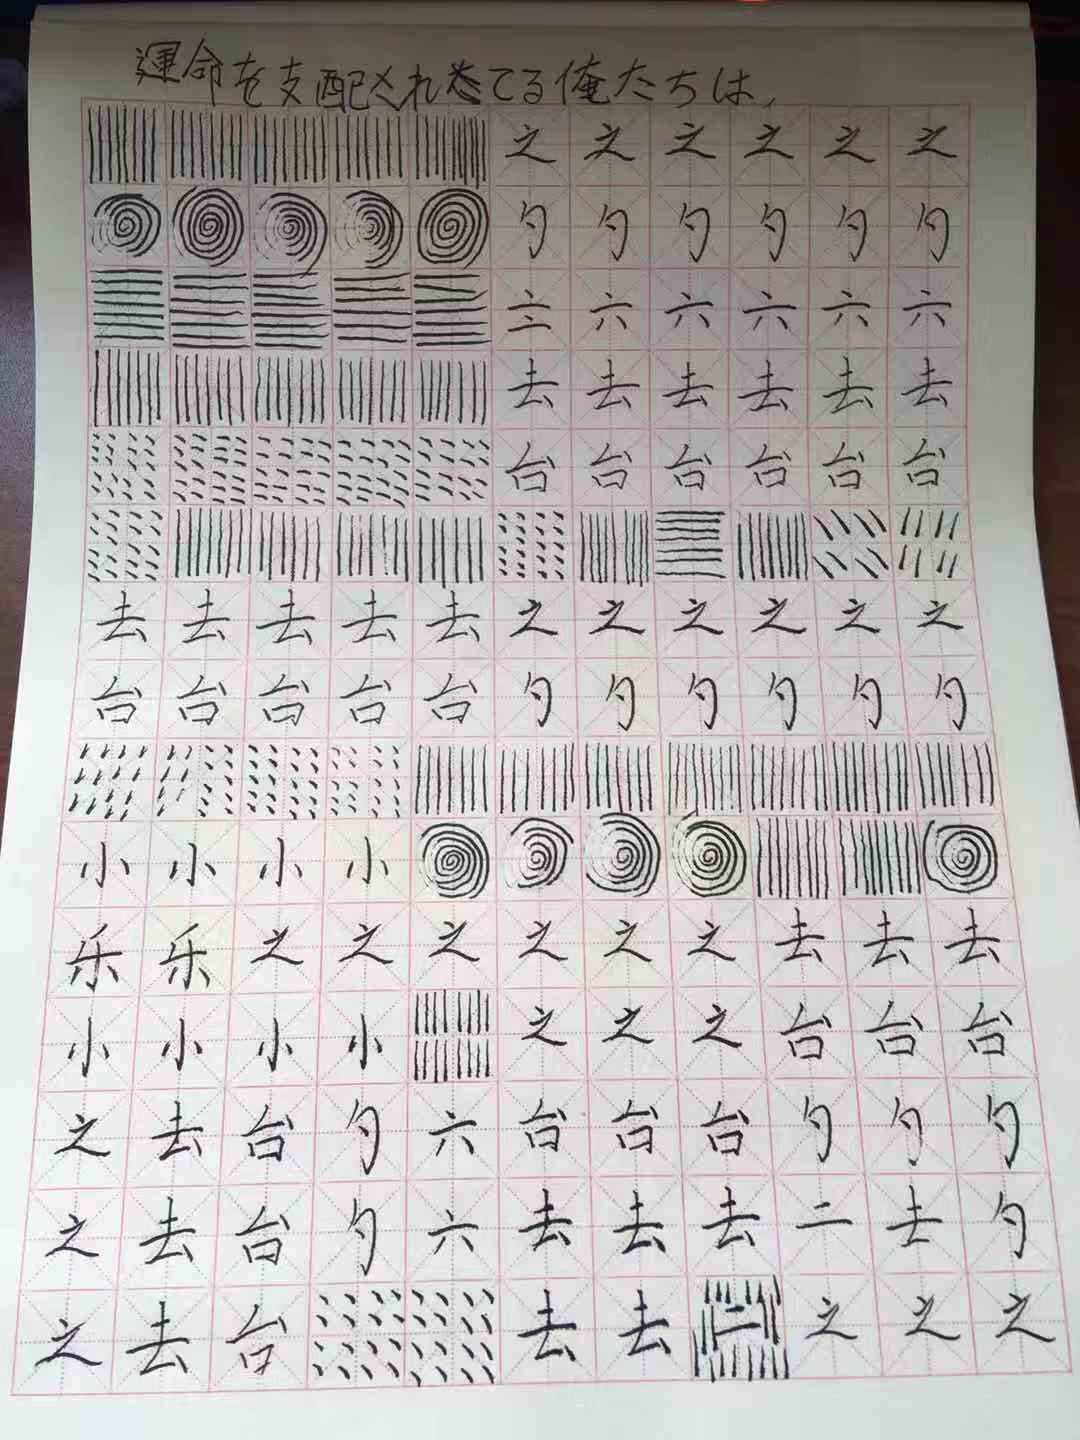 運命を支配されたてる俺たちは、
之之之之之之
勺勺勺勺勺勺
亠二六六六六六
去去去去去去
台台台台台台
去去去去去之之之之之之
台台台台台勺勺勺勺勺勺
小小小小
乐乐之之之之之之去去去
小小小小之之之台台台
之去台勺六台台台勺勺勺
之去台勺六去去去二去勺
之去台去去二之之之